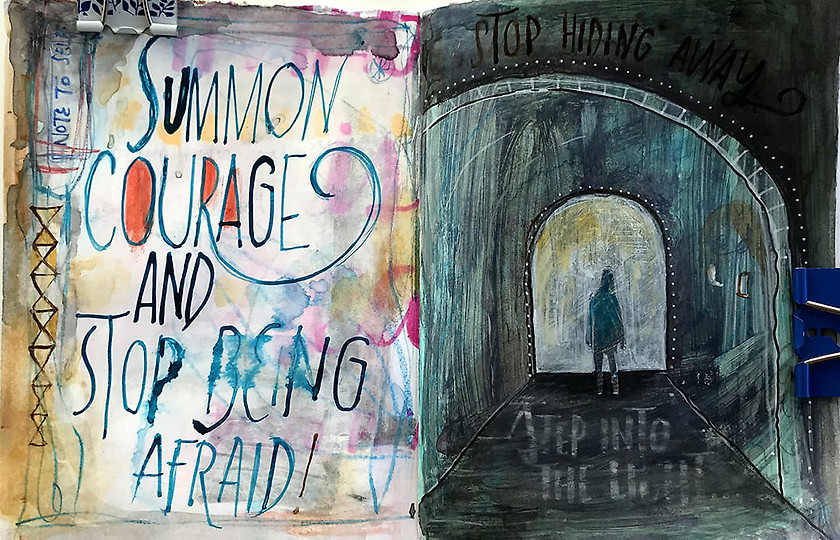 NOTE TO SELF
SUMMON
COURAGE
AND
STOP BEING
AFRAID!
STOP HIDING AWAY
STEP INTO
THE LIGHT...